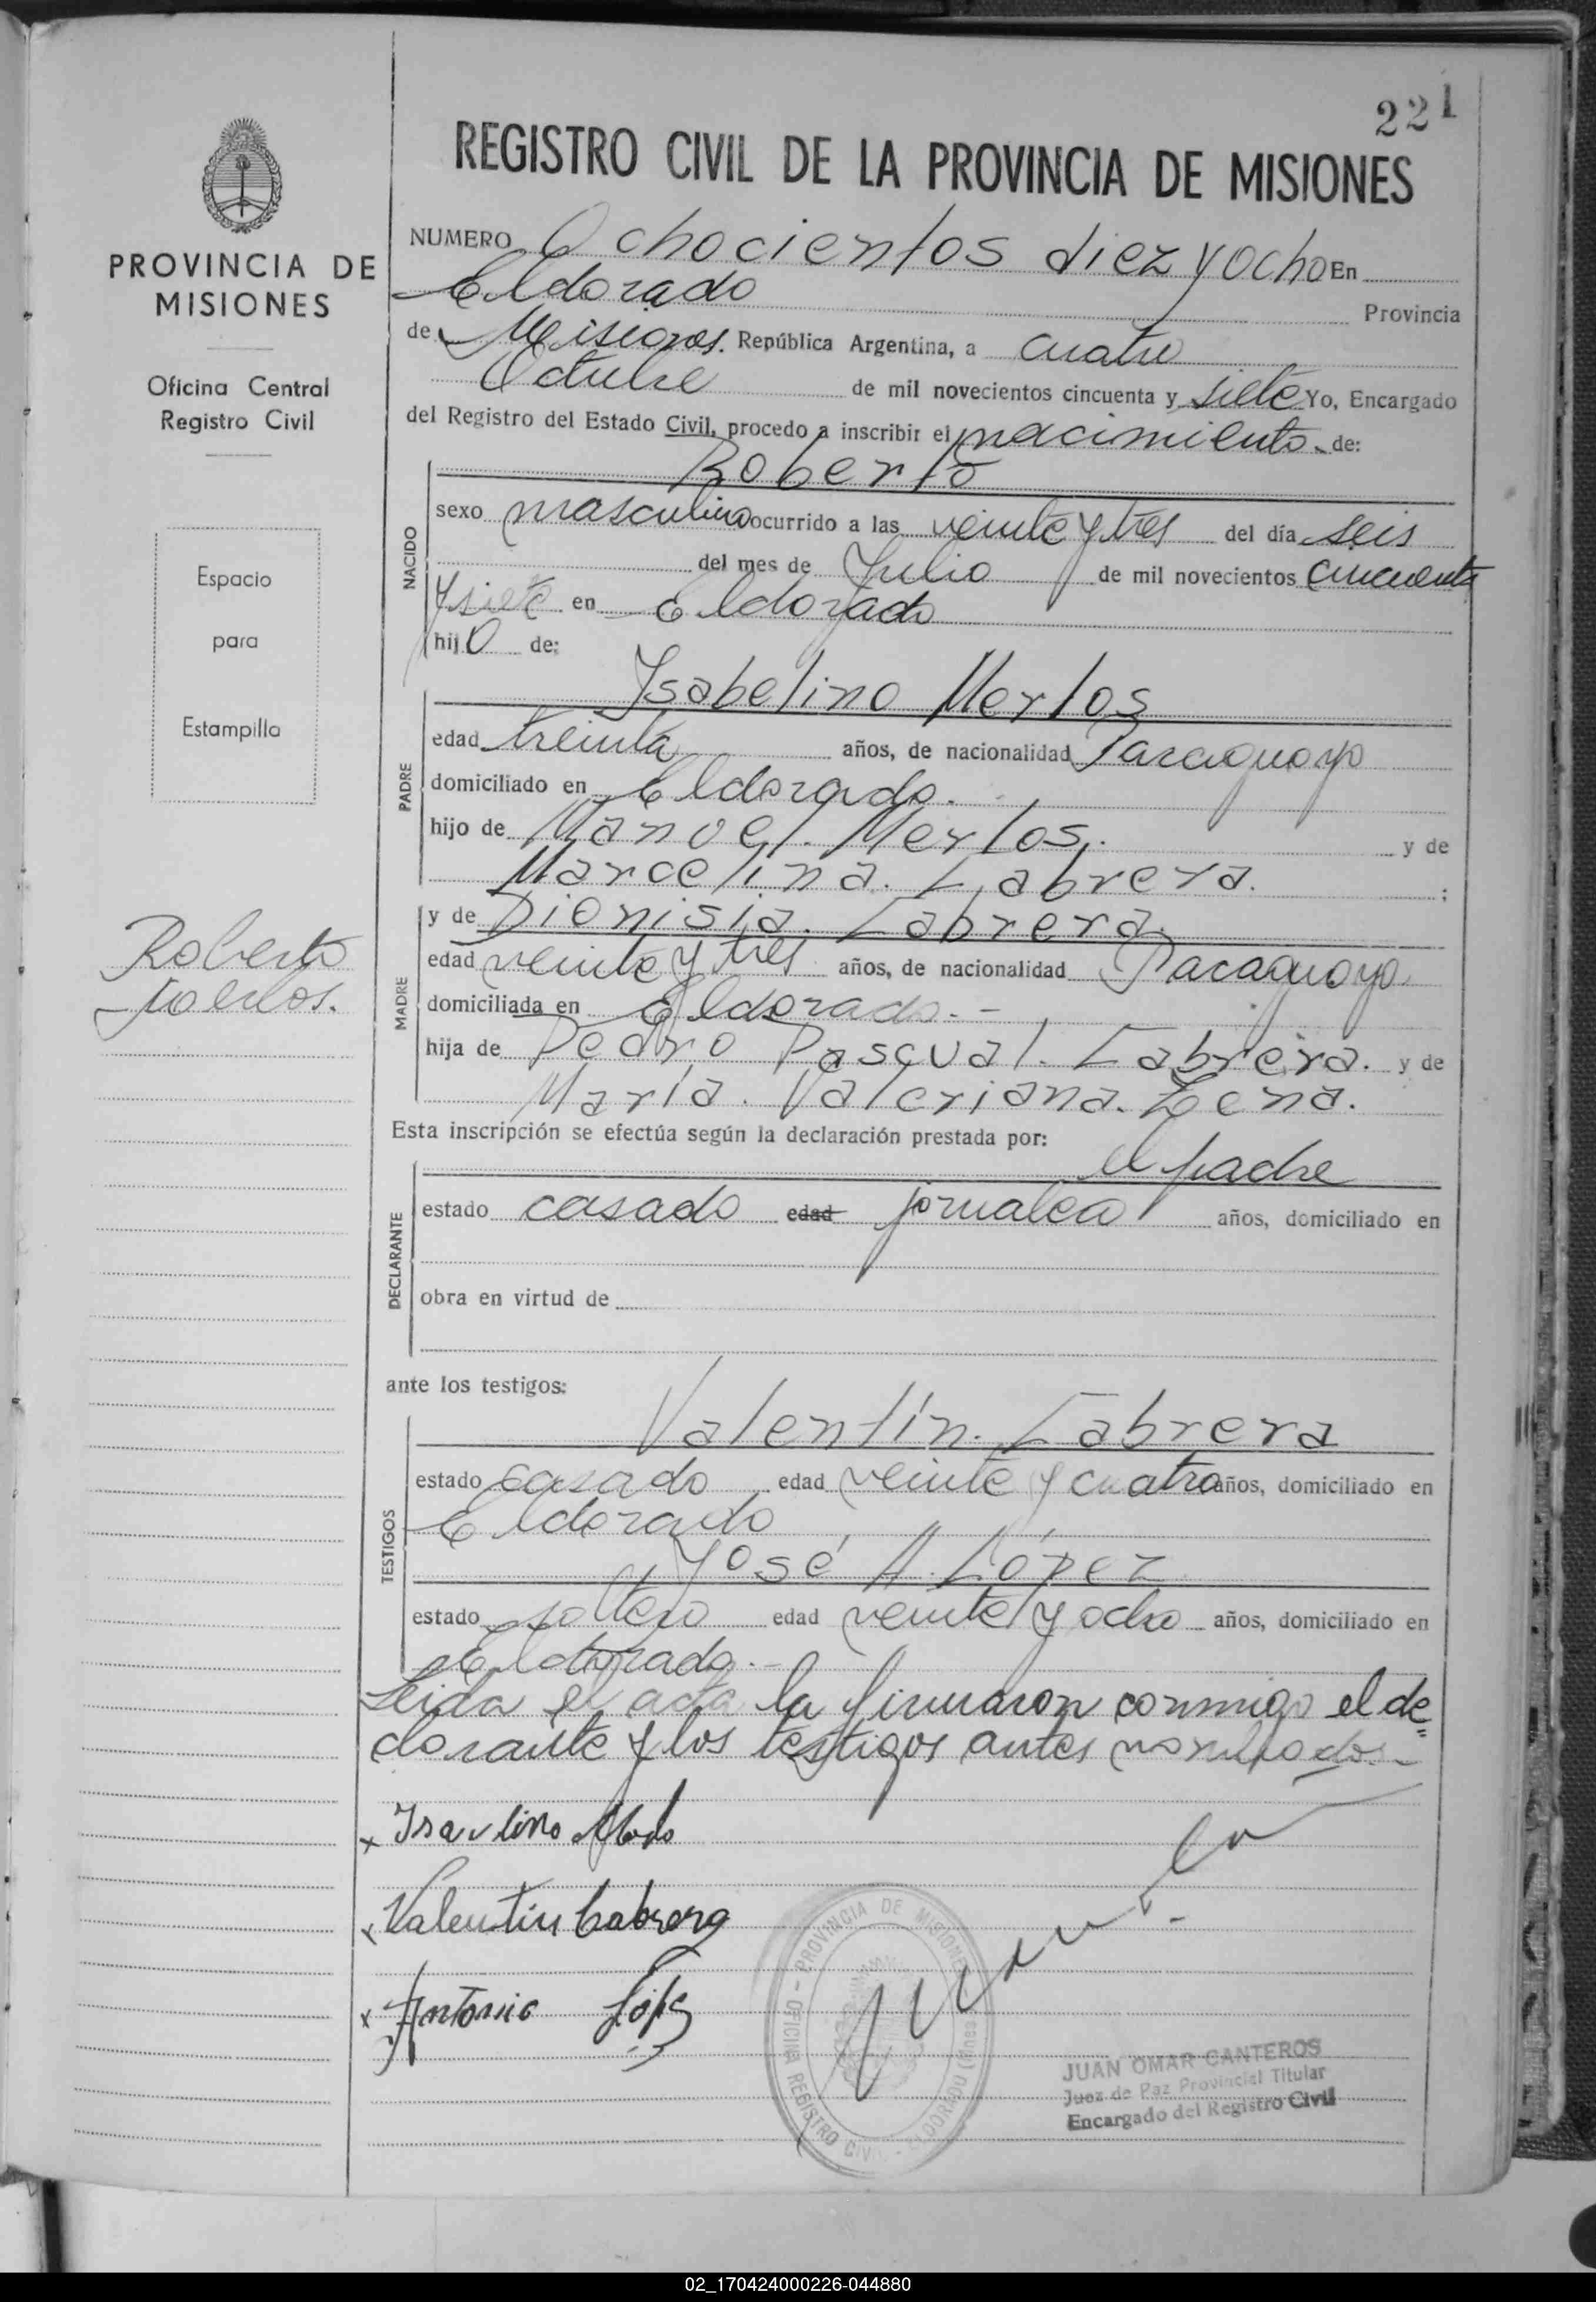 221
REGISTRO CIVIL DE LA PROVINCIA DE MISIONES
PROVINCIA DE
MISIONES
Oficina Central
Registro Civil
Espacio
para
Estampilla
Roberto
Merlos.
NUMERO Ochocientos diez y ocho En
Eldorado Provincia
de Misiones. República Argentina, a cuatro
Octubre de mil novecientos cincuenta y siete Yo, Encargado
del Registro del Estado Civil, procedo a inscribir el nacimiento de:
Roberto
NACIDO
sexo masculino ocurrido a las veinte y tres del día seis
del mes de Julio de mil novecientos cincuenta
y siete en Eldorado
hijo de:
Ysabelino Merlos
PADRE
edad treinta años, de nacionalidad Paraguayo
domiciliado en Eldorado.
hijo de Manoel. Merlos. y de
Marcelina. Cabrera. ;
y de Dionisia. Cabrera.
MADRE
edad veinte y tres años, de nacionalidad Paraguaya
domiciliada en Eldorado.-
hija de Pedro Pascual. Cabrera. y de
María. Valeriana.
Esta inscripción se efectúa según la declaración prestada por:
el padre
DECLARANTE
estado casado edad jornalea años, domiciliado en
obra en virtud de
ante los testigos:
Valentín. Cabrera
TESTIGOS
estado casado edad veinte y cuatro años, domiciliado en
Eldorado
José A. López
estado soltero edad veinte y ocho años, domiciliado en
Eldorado.-
Leida el acta la firmaron conmigo el de=
clarante y los testigos antes nombrados.-
x
x Valentin Cabrera
x Antonio López
PROVINCIA DE MISIONES - OFICINA REGISTRO CIVIL - ELDORADO (Mnes)
JUAN OMAR CANTEROS
Juez de Paz Provincial Titular
Encargado del Registro Civil
02_170424000226-044880